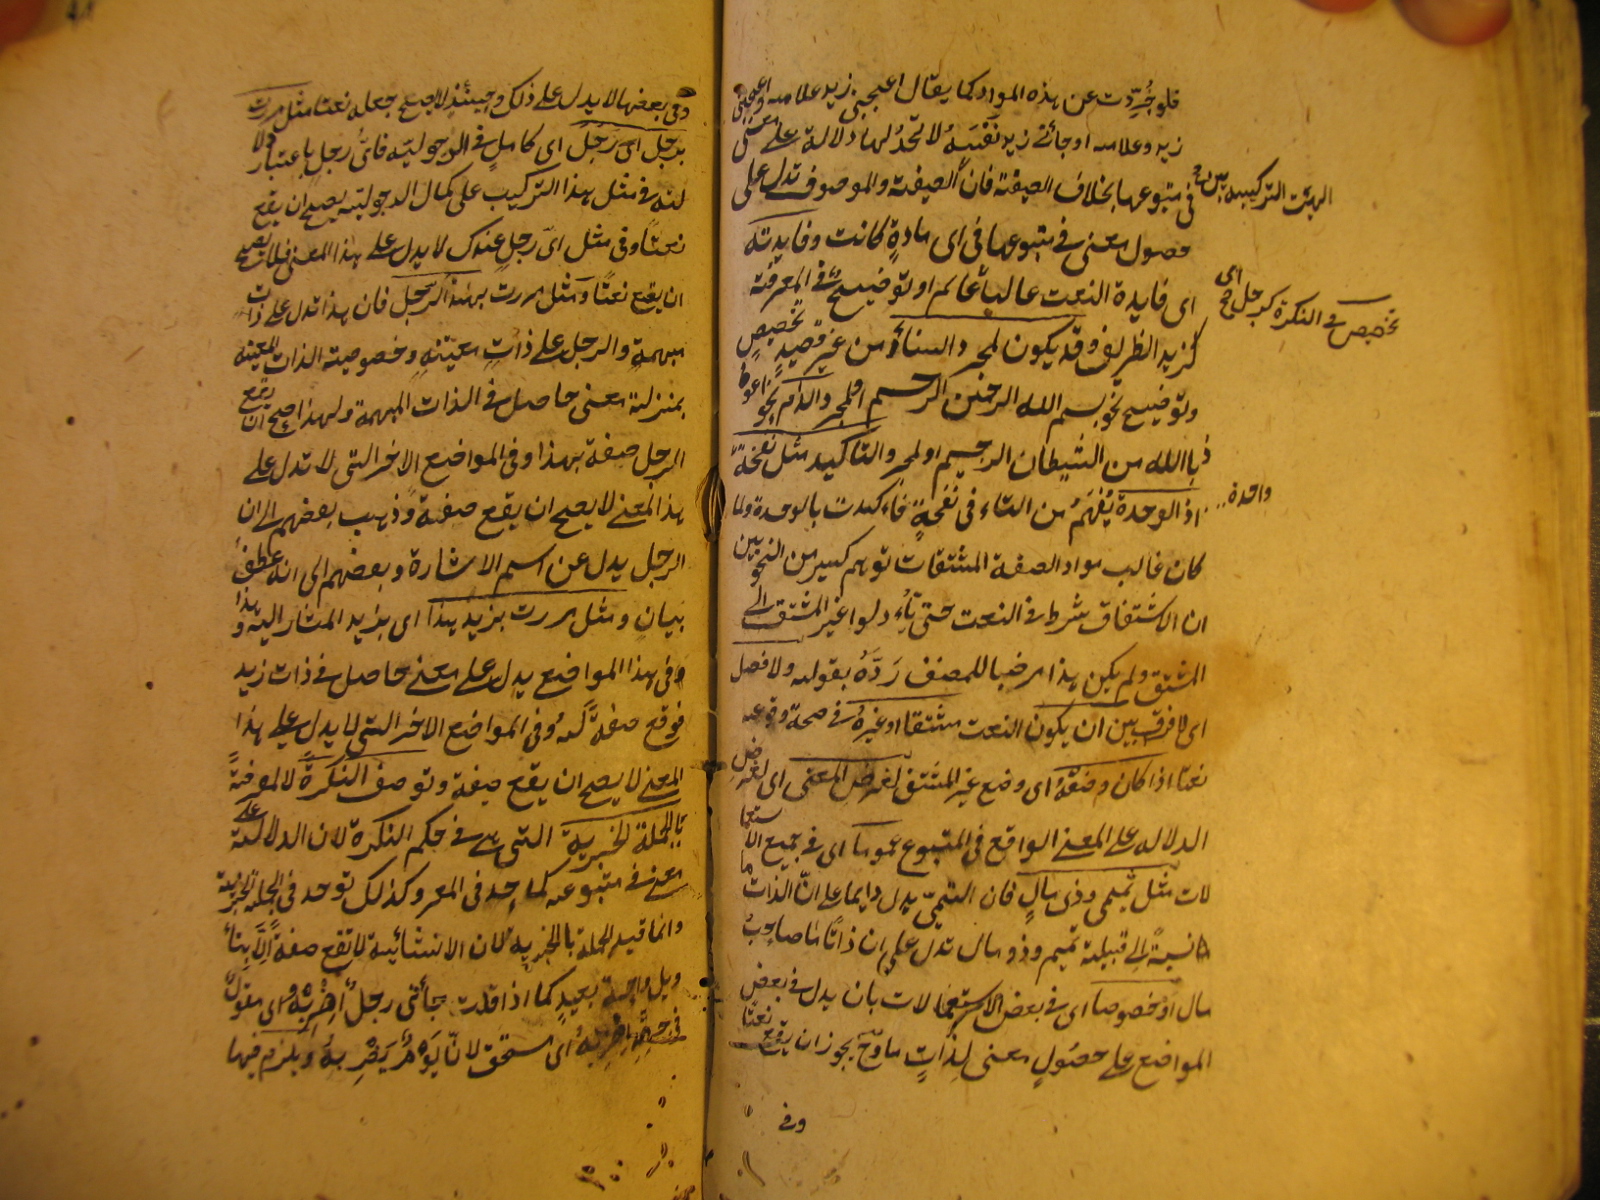 فلو جُرِّدت عن هذه المواد كما يقال اعجبنى زيد علامه واعجبنى
زيد وعلامه او جائنى زيد نفسه لا تجد لها دلالة على معنى
فى متبوعها بخلاف الصفة فان الهيئة التركيبية بين الصفة والموصوف تدل على
حصول معنى فى متبوعها فى اى مادة كانت وفايدته
اى فايدة النعت غالبا تخصيص فى النكرة كرجل عالم او توضيح فى المعرفة
كزيد الظريف وقد يكون لمجرد الثناء من غير قصد تخصيص
وتوضيح نحو بسم الله الرحمن الرحيم او لمجرد الذم نحو اعوذ
بالله من الشيطان الرجيم او لمجرد التاكيد مثل نفخة واحدة
اذ الوحدة يُفهَم من التاء فى نفخةٍ فاكدت بالوحدة ولما
كان غالب مواد الصفة المشتقات توهم كثير من النحويين
ان الاشتقاق شرط فى النعت حتى تأولوا غير المشتق الى
المشتق ولم يكن هذا مرضيا للمصنف رَدَّهُ بقوله ولا فصل
اى لا فرق بين ان يكون النعت مشتقا او غيره فى صحة وقوعه
نعتا اذا كان وضعُهُ اى وضع غير المشتق لغرض المعنى اى لغرض
الدلالة على المعنى الواقع فى المتبوع عموما اى فى جميع الاستعما
لات مثل تميمى وذى مالٍ فان التميمى يدل دايما على ان لذات
ما نسبةً الى قبيلة تميم وذو مال تدل على ان ذاتًا ما صاحب
مال او خصوصا اى فى بعض الاستعمالات بان يدل فى بعض
المواضع على حصول معنى لذاتٍ ما وح يجوز ان يقع نعتا
وفى
وفى بعضها لا يدل على ذلك وحينئذ لا يصح جعله نعتا مثل مررت
برجل اى رجل اى كامل فى الرجولية فاى رجل باعتبار دلا
لته فى مثل هذا التركيب على كمال الرجولية يصح ان يقع
نعتًا وفى مثل اى رجل عندك لا يدل على هذا المعنى فلا يصح
ان يقع نعتًا ومثل مررت بهذا الرجل فان هذا تدل على ذات
مبهمة والرجل على ذاتٍ معينةٍ وخصوصية الذات المعينة
بمنزلة معنى حاصل فى الذات المبهمة ولهذا صح ان يقع
الرجل صفة بهذا وفى المواضع الاخر التى لا تدل على
هذا المعنى لا يصح ان يقع صفة وذهب بعضهم الى ان
الرجل بدل عن اسم الاشارة وبعضهم الى انه عطف
بيان ومثل مررت بزيد هذا اى بزيد المشار اليه وهذا
وفى هذا المواضع يدل على معنى حاصل فى ذات زيد
فوقع صفة له وفى المواضع الاخر التى لا يدل على هذا
المعنى لا يصح ان يقع صفة وتوصف النكرة لا المعرفة
بالجملة الخبرية التى هى فى حكم النكرة لان الدلالة على
معنى فى متبوعه كما يوجد فى المفرد كذلك توجد فى الجملة الخبرية
وانما قيد الجملة بالخبرية لان الانشائية لا تقع صفة الا بتأ
ويل بعيد كما اذا قلت جأنى رجل اضربه اى مقول
فى حقه اضربه اى مستحق لان يؤمر بضربه ويلزم فيها